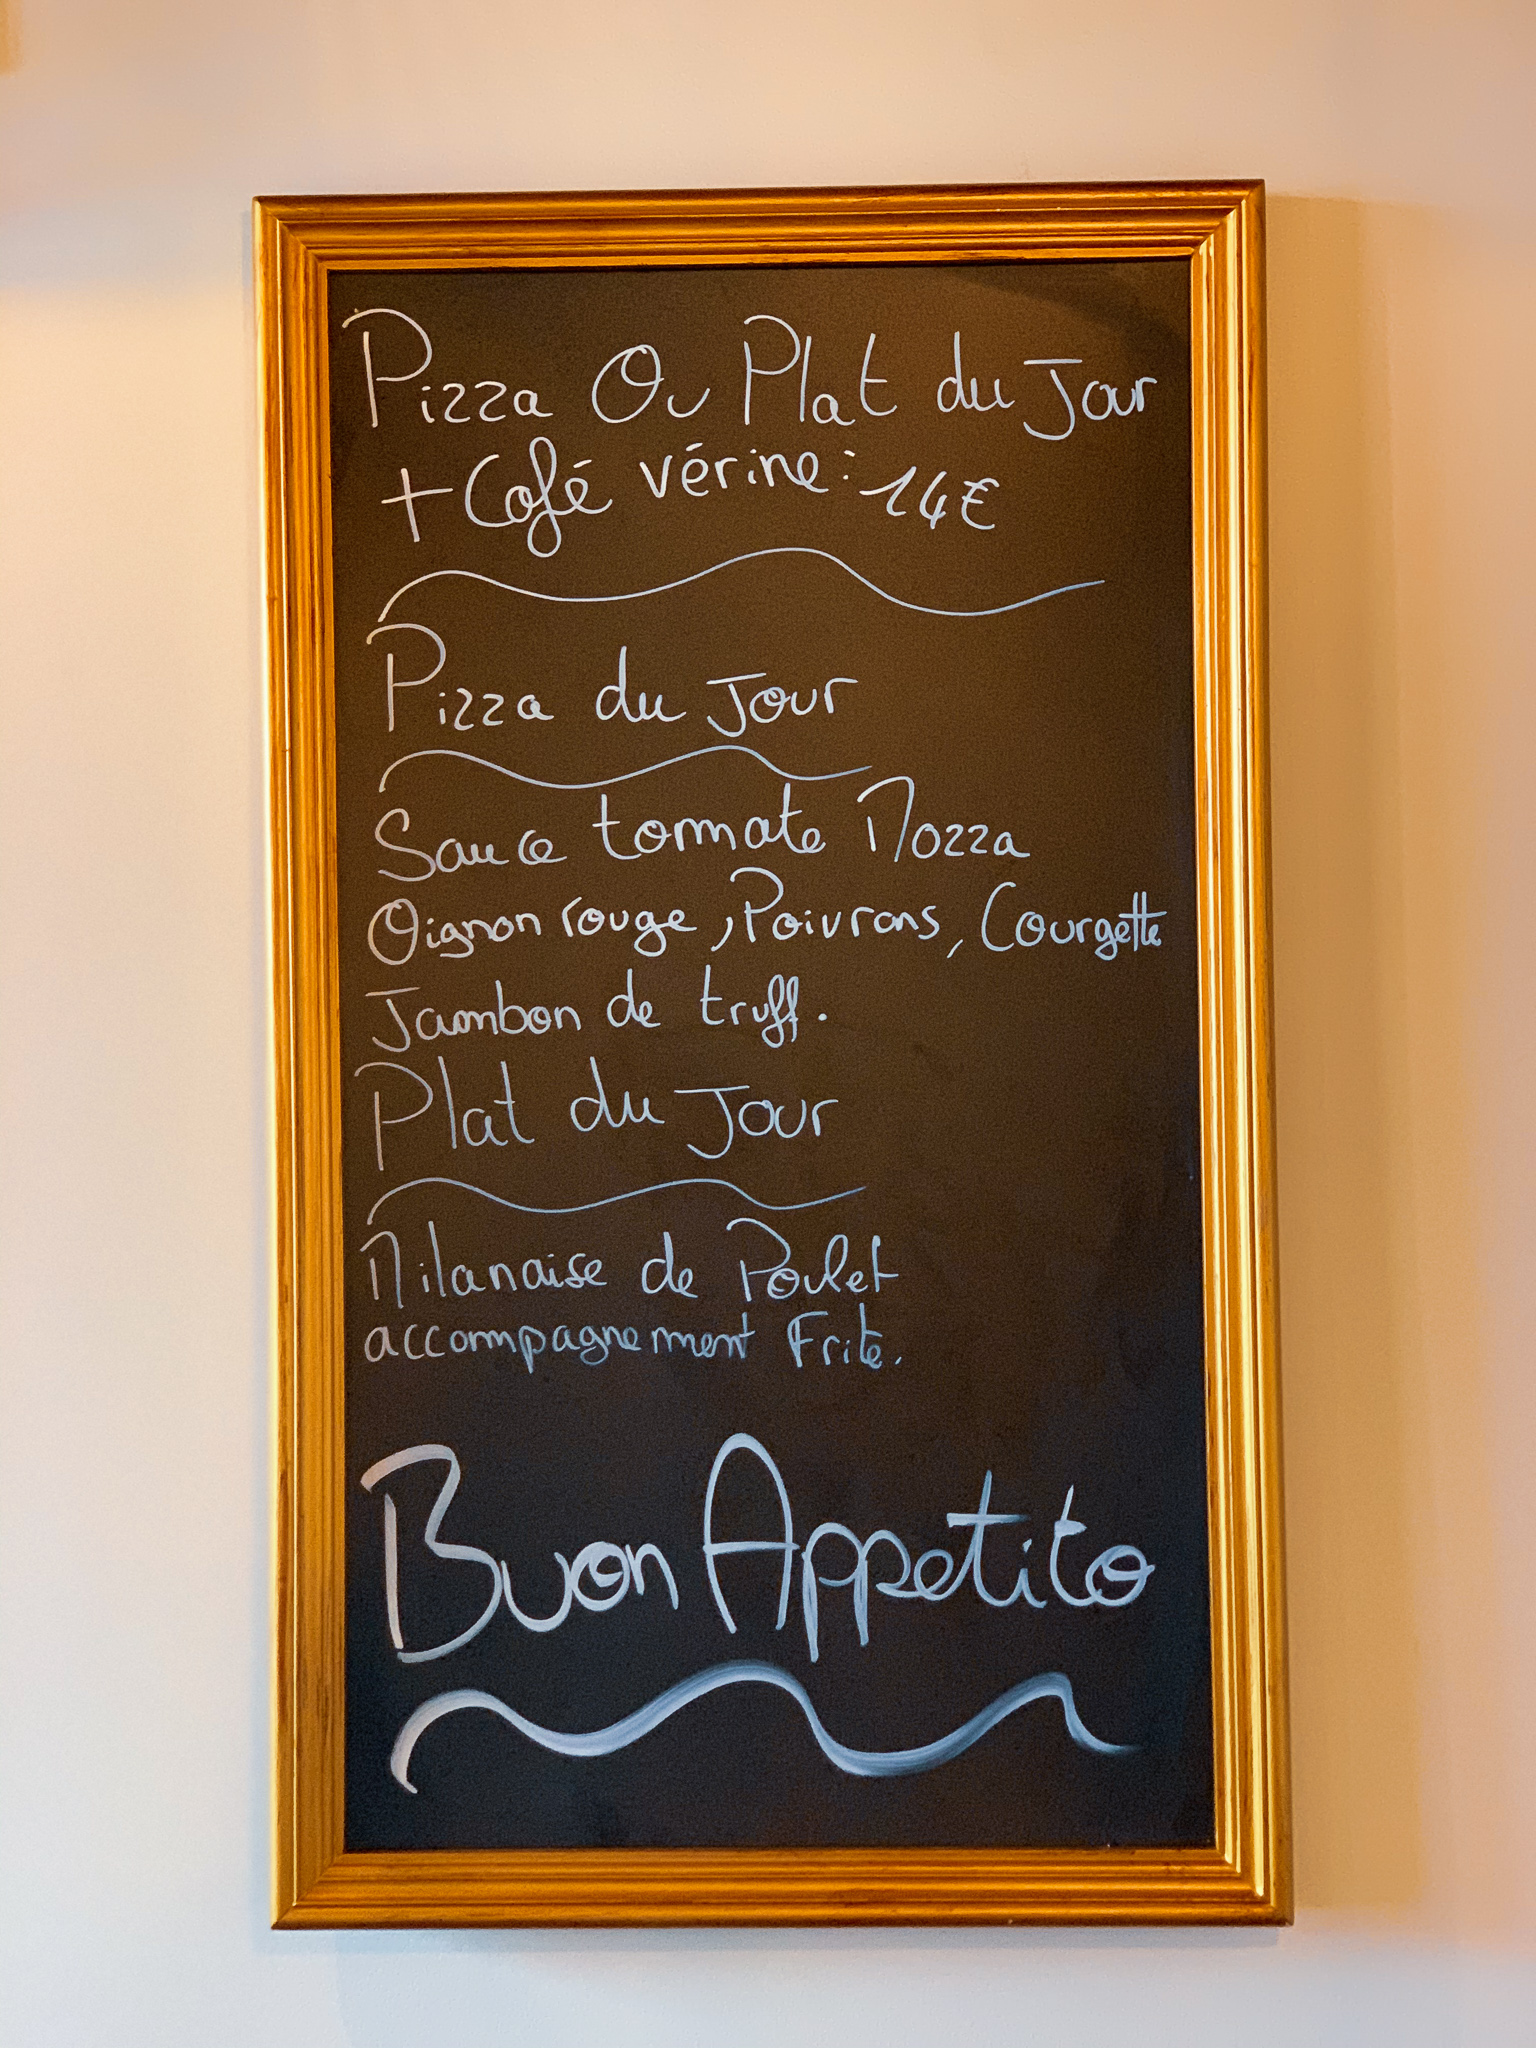 Pizza Ou Plat du Jour
+ Café vérine : 14€
Pizza du Jour
Sauce tomate Mozza
Oignon rouge, Poivrons, Courgette
Jambon de truff.
Plat du Jour
Milanaise de Poulet
accompagnement Frite.
Buon Appetito